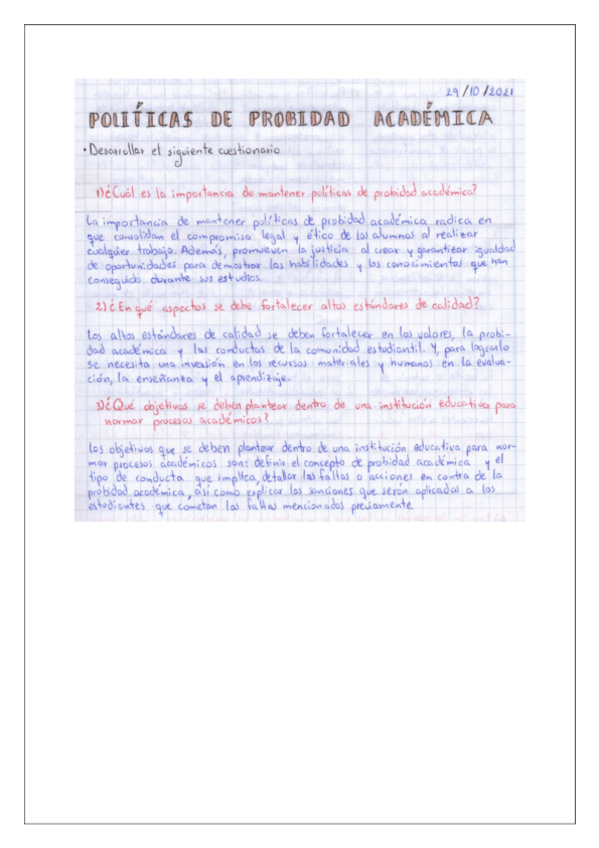 29/10/2021
POLÍTICAS DE PROBIDAD ACADÉMICA
• Desarrollar el siguiente cuestionario
1) ¿Cuál es la importancia de mantener políticas de probidad académica?
La importancia de mantener políticas de probidad académica radica en
que consolidan el compromiso legal y ético de los alumnos al realizar
cualquier trabajo. Además, promueven la justicia al crear y garantizar igualdad
de oportunidades para demostrar las habilidades y los conocimientos que han
conseguido durante sus estudios.
2) ¿En qué aspectos se debe fortalecer altos estándares de calidad?
Los altos estándares de calidad se deben fortalecer en los valores, la probi-
dad académica y las conductas de la comunidad estudiantil. Y, para lograrlo
se necesita una inversión en los recursos materiales y humanos en la evalua-
ción, la enseñanza y el aprendizaje.
3) ¿Qué objetivos se deben plantear dentro de una institución educativa para
normar procesos académicos?
Los objetivos que se deben plantear dentro de una institución educativa para nor-
mar procesos académicos son: definir el concepto de probidad académica y el
tipo de conducta que implica, detallar las faltas o acciones en contra de la
probidad académica, así como explicar las sanciones que serán aplicadas a los
estudiantes que cometan las faltas mencionadas previamente